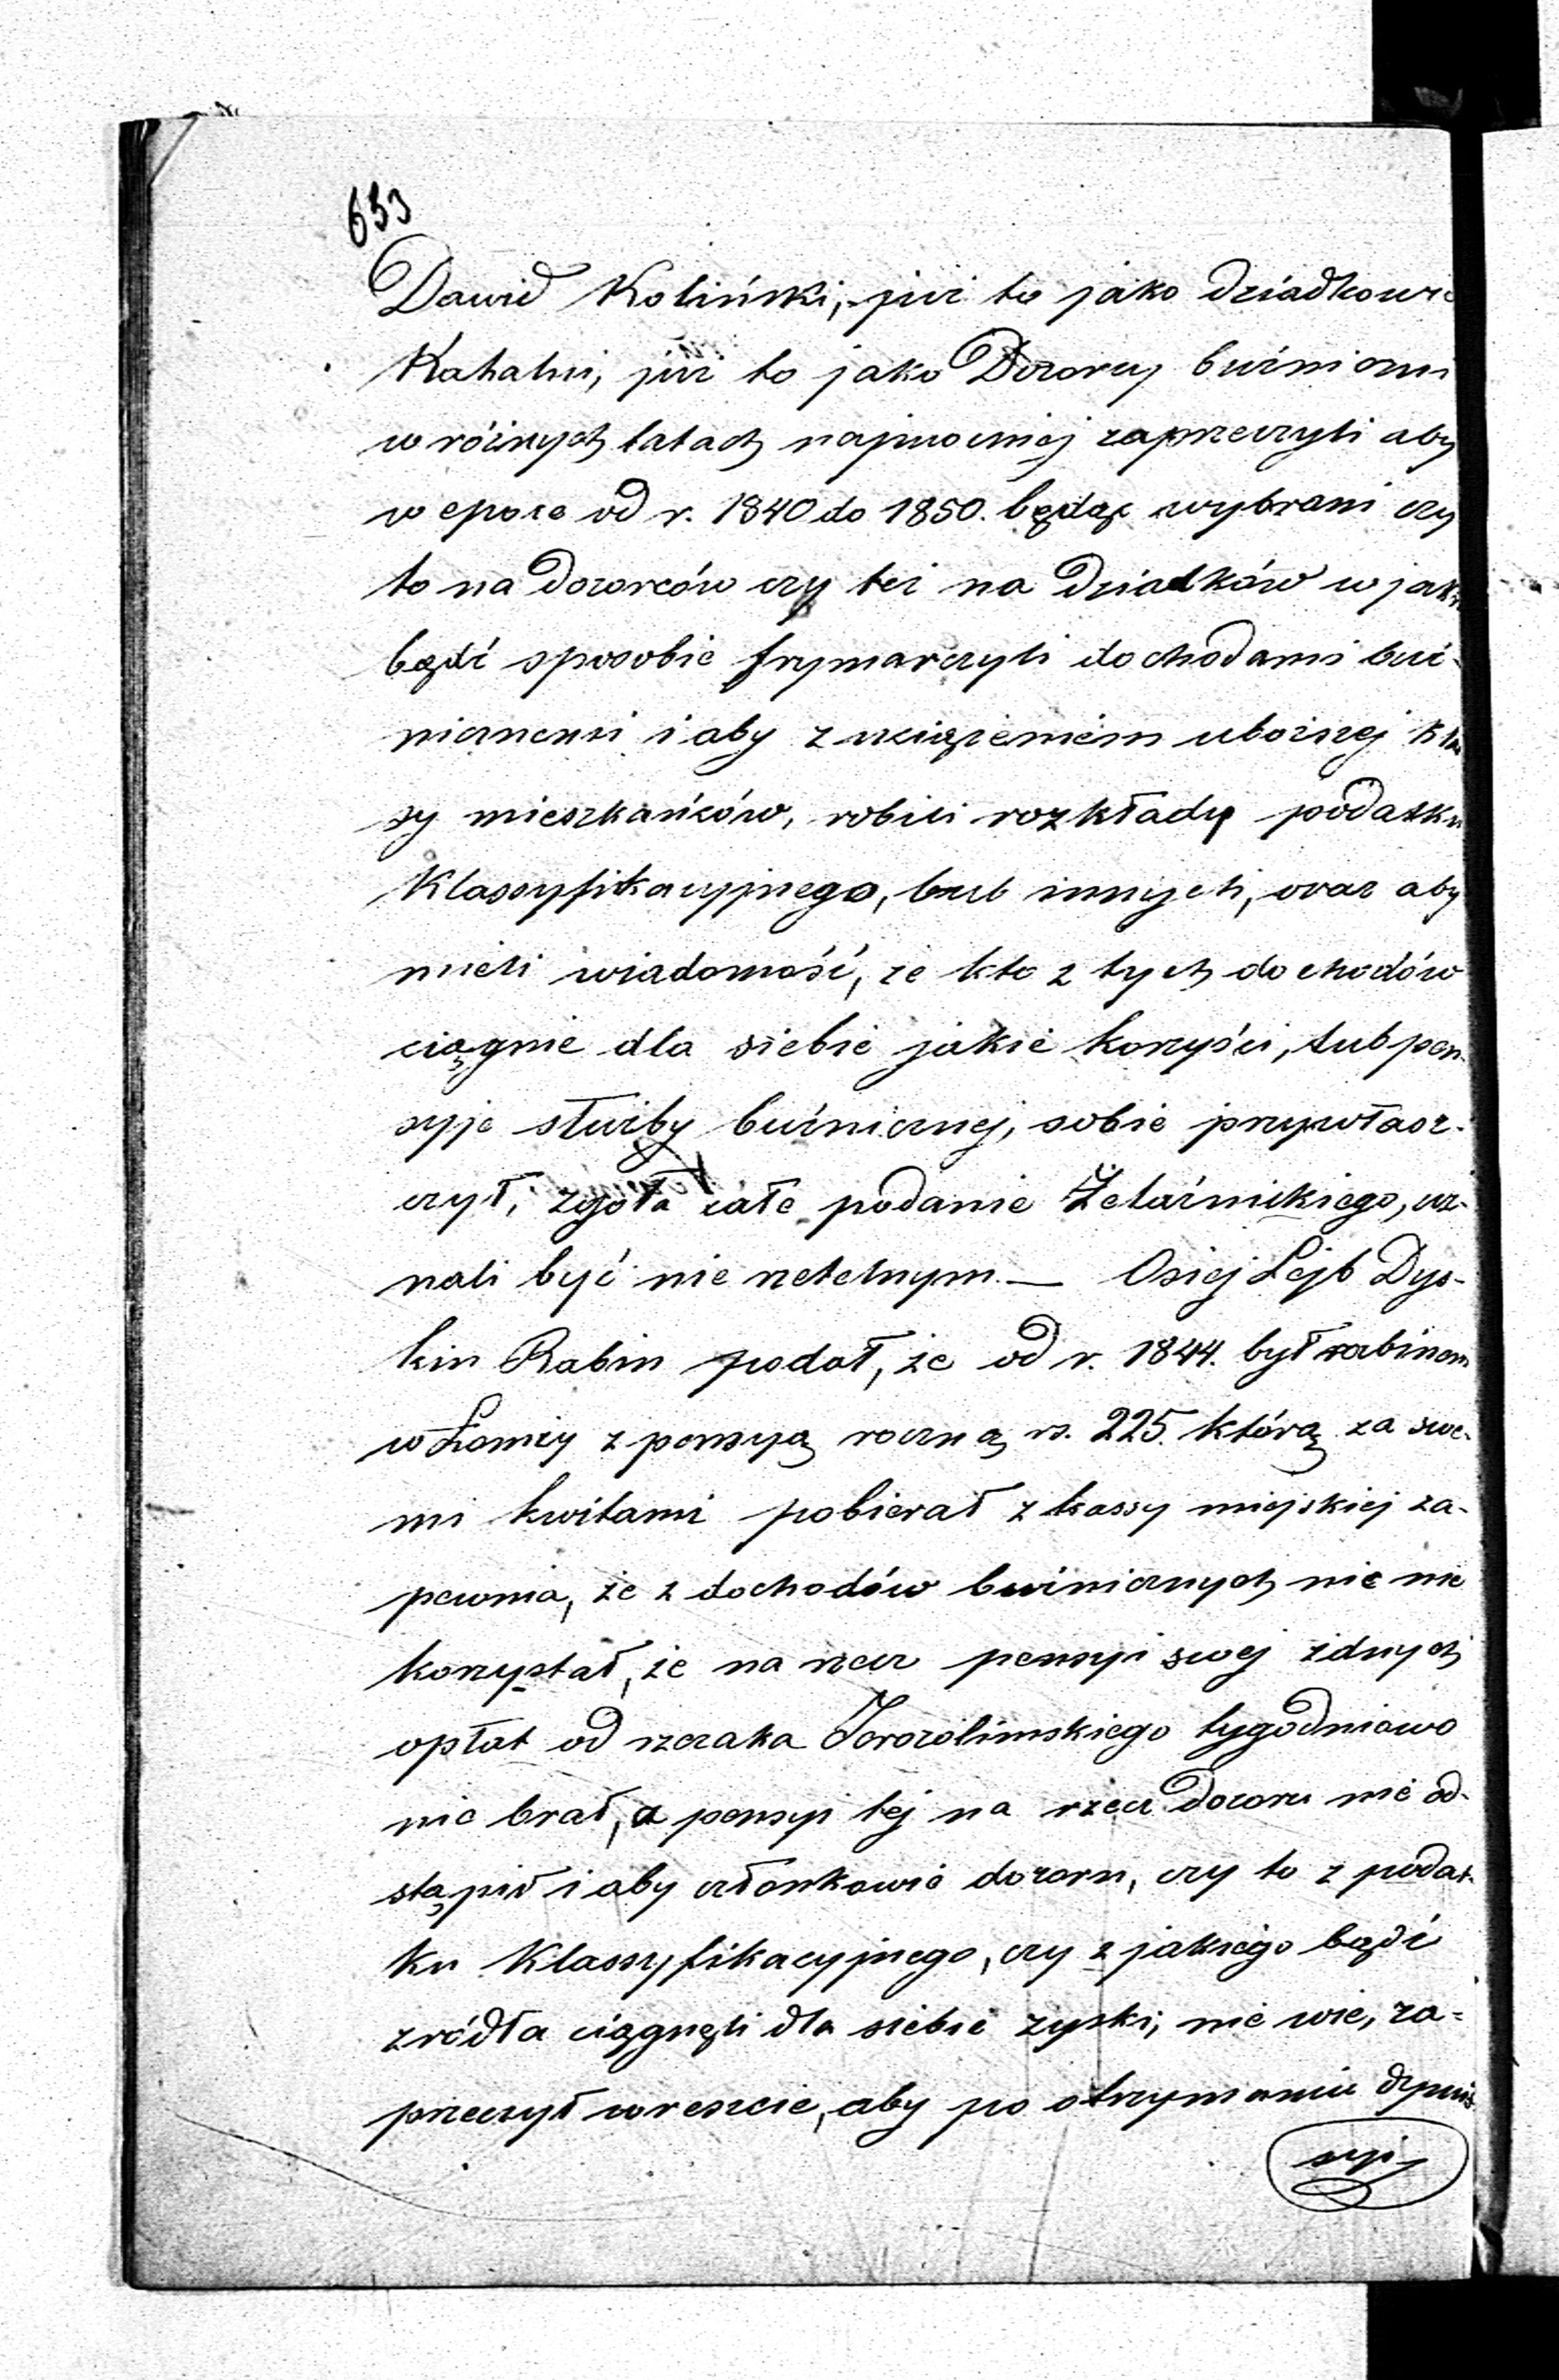 653
Dawid Koliński, już to jako dziadkowie
Kahalni, już to jako Dozorcy bużniczni
w różnych latach najmocniej zaprzeczyli aby
w epoce od r. 1840 do 1850. będąc wybrani czy
to na dozorców czy też na dziadków w jaki
bądź sposobie frymarczyli dochodami buż-
nicznemi i aby z uciążeniem uboższej kla
sy mieszkańców, robili rozkłady podatku
Klassyfikacyjnego, lub innych, oraz aby
mieli wiadomość, że kto z tych dochodów
ciągnie dla siebie jakie korzyści, lub pen-
syje służby bużnicznej, sobie przywłasz-
czył, zgoła całe podanie Żelaźnickiego, uz-
nali być nie rzetelnym. — Osiej Lejb Dys-
kin Rabin podał, że od r. 1844. był rabinem
w Łomży z pensyą roczną rs. 225. którą za swe-
mi kwitami pobierał z kassy miejskiej za-
pewnia, że z dochodów bużnicznych nic nie
korzystał, że na rzecz pensyi swej żdnych
opłat od rzezaka Jerozolimskiego tygodniowo
nie brał, a pensyi tej na rzecz Dozoru nie od-
stąpił i aby członkowie dozoru, czy to z podat-
ku Klassyfikacyjnego, czy z jakiego bądź
zródła ciągnęli dla siebie zyski, nie wie, za-
przeczył wreszcie, aby po otrzymaniu dymis
syi